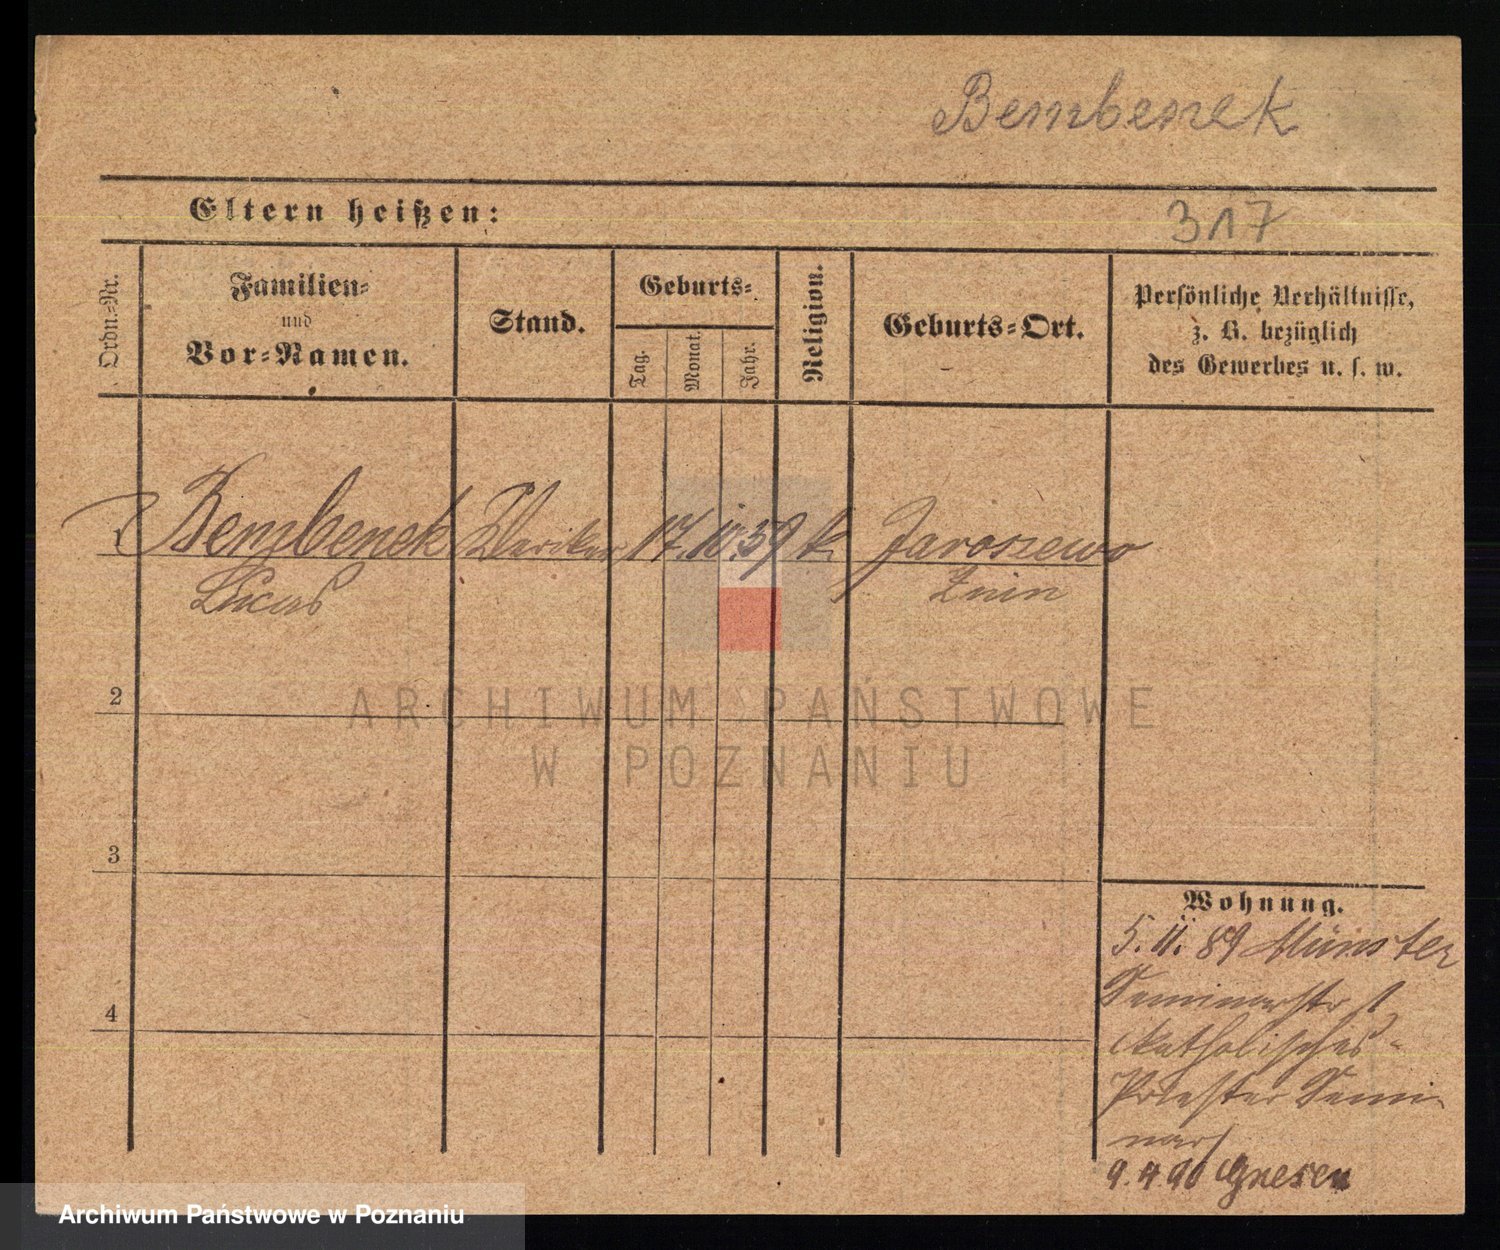 Bembenek
Eltern heißen:
317
Ordn.-Nr.
Familien-
und
Vor-Namen.
Stand.
Geburts-
Tag.
Monat.
Jahr.
Religion.
Geburts-Ort.
Persönliche Verhältnisse,
z. B. bezüglich
des Gewerbes u. s. w.
1 Bembenek Kleriker 17. 10. 59 k. Jaroszewo
Lucas Znin
2
ARCHIWUM PAŃSTWOWE
W POZNANIU
3
Wohnung.
5. 11. 89 Münster
4
Seminarstr
katholisches-
Priester Semi-
nar
9. 4. 90 Gnesen
Archiwum Państwowe w Poznaniu